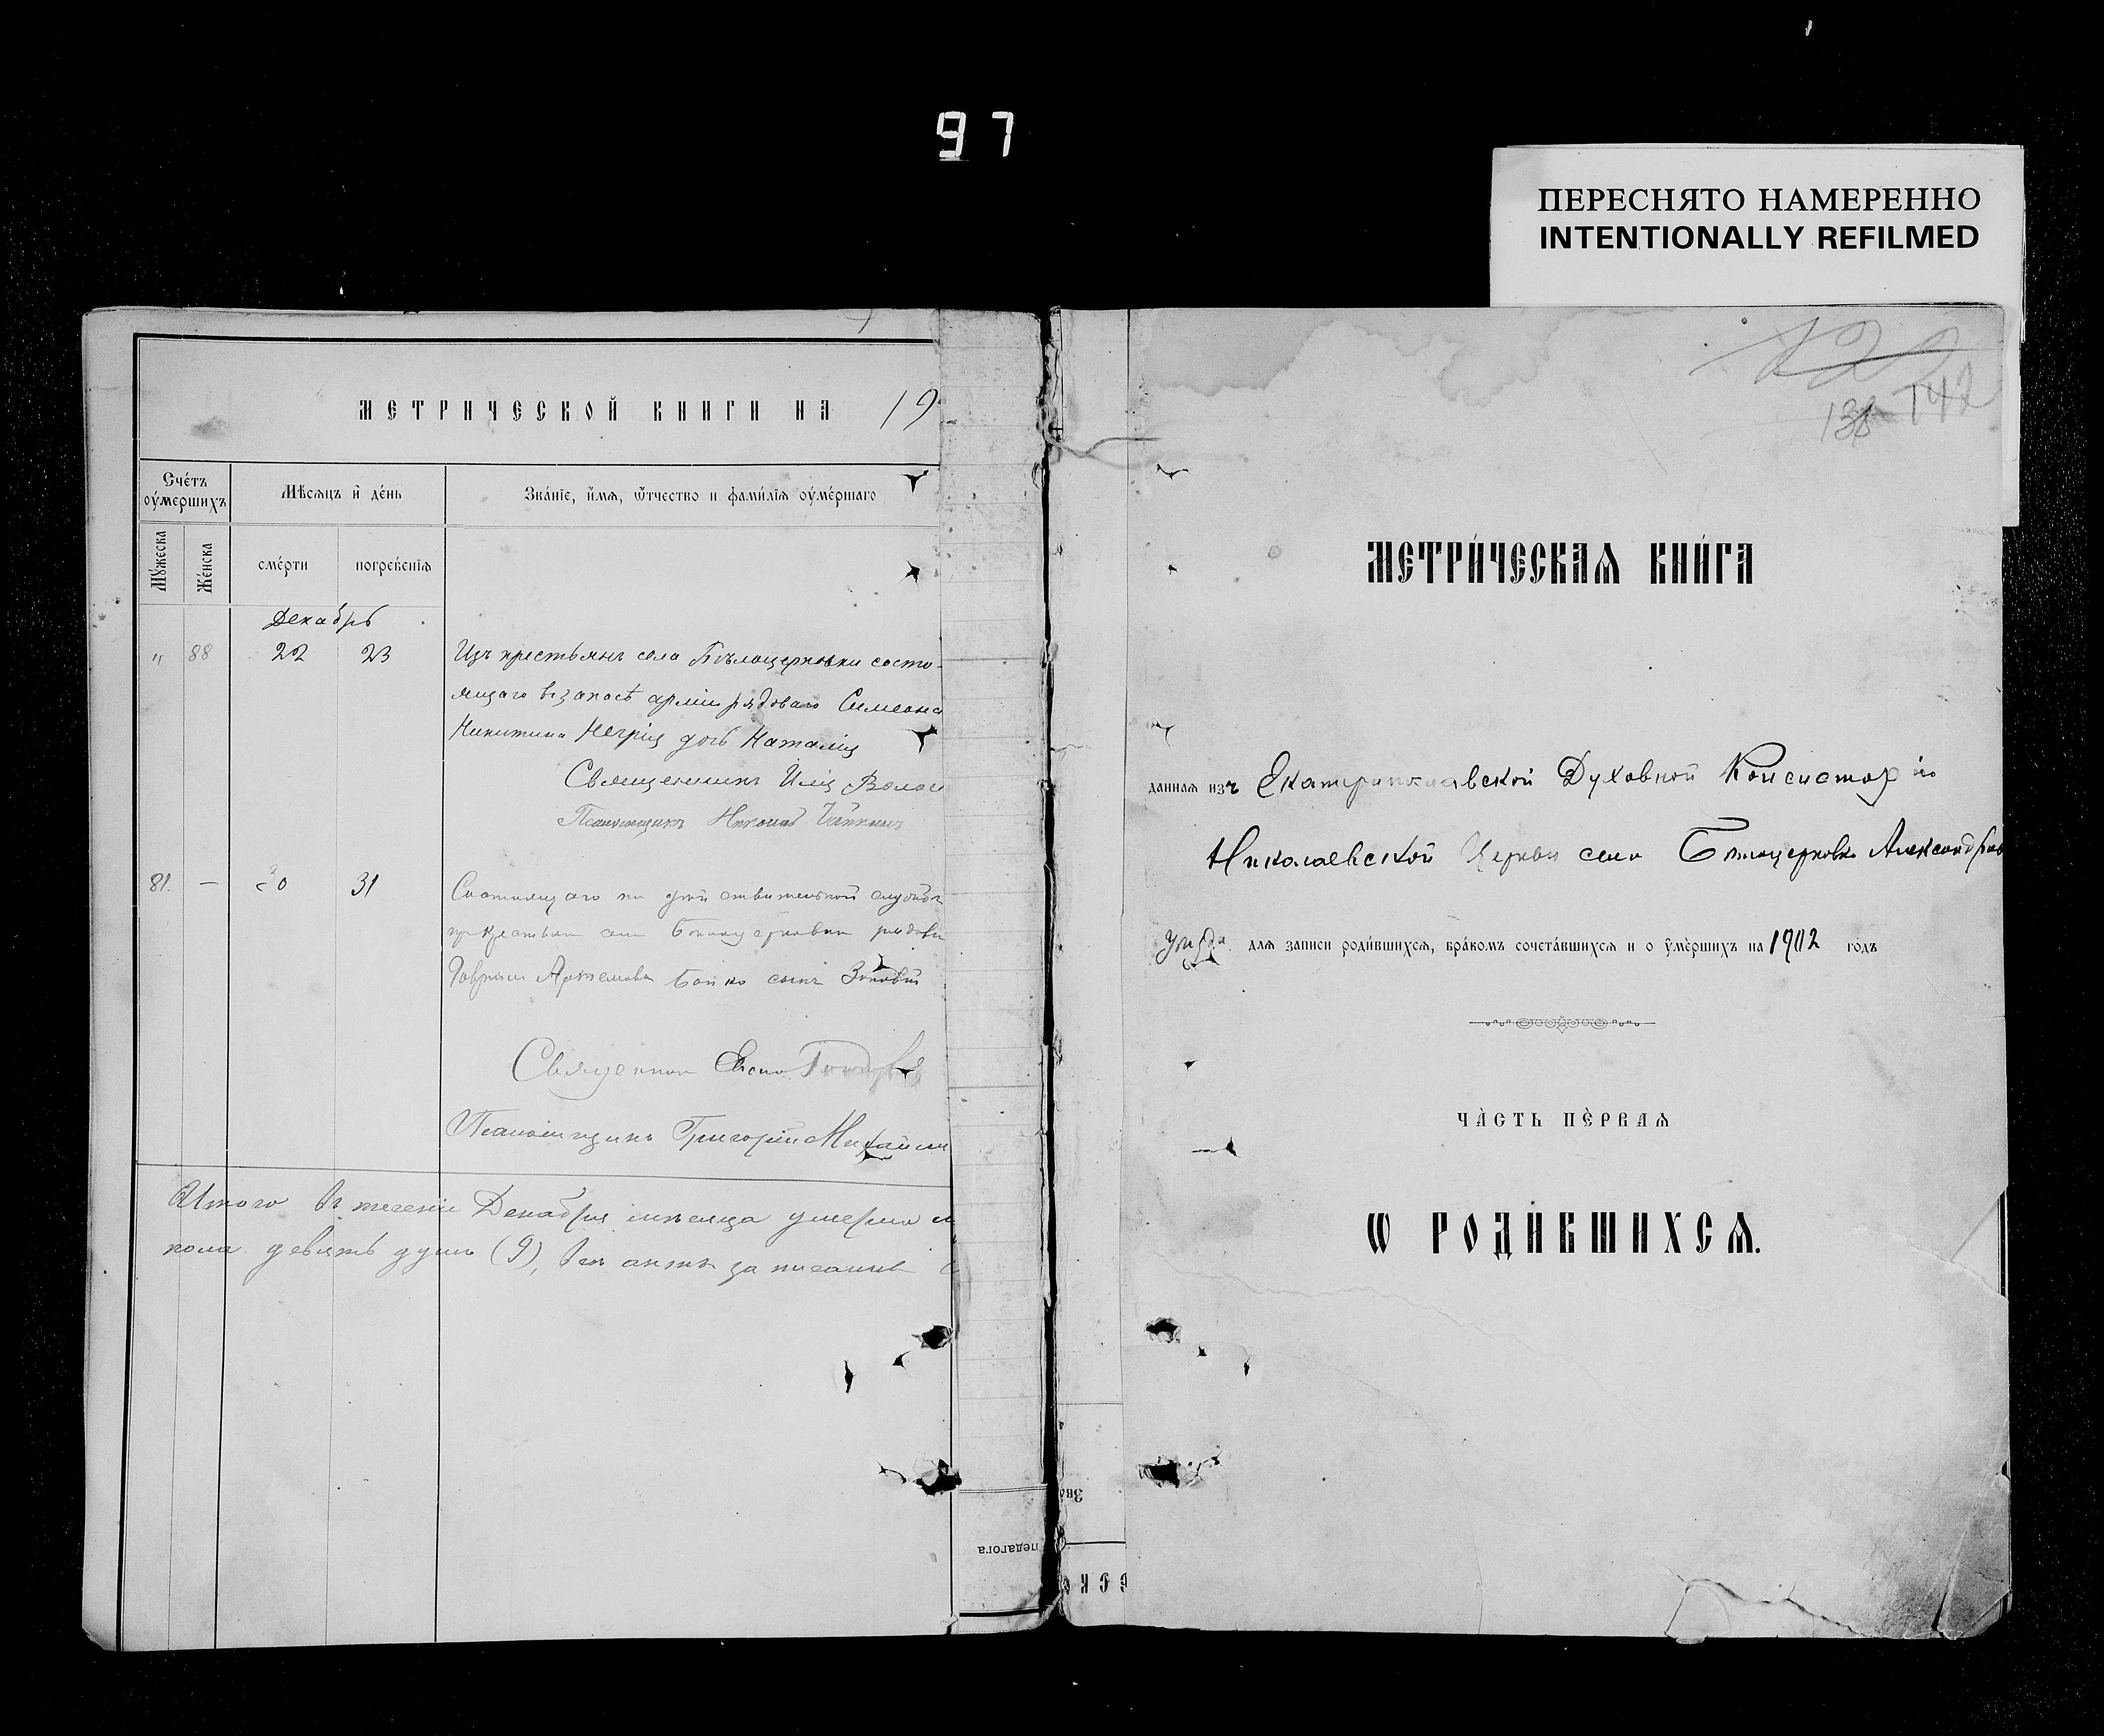 97
ПЕРЕСНЯТО НАМЕРЕННО
INTENTIONALLY REFILMED
МЕТРИЧЕСКОЙ КНИГИ НА 19
Сче́тъ ᲂу҆́мершихъ
Мѣсѧцъ и҆ де́нь
Зва́нїе, и҆́мѧ, ѻ҆́тчество и фами́лїѧ ᲂу҆ме́ршаго
Мꙋ́жеска
Же́нска
сме́рти
погребенїѧ
Декабрь
" 88 22 23 Изъ крестьянъ села Бѣлоцерковки состо-
ящаго въ запасѣ арміи рядоваго Симеона
Никитина Негрій дочь Наталія
Священникъ Илія Волош
Псаломщикъ Николай
81. — 30 31 Состоящаго на действительной службѣ
крестьян села Белоцерковки рядов
Гавриіл Артемова Бойко сынъ Зиновій
Священник
Псаломщикъ Григорій Михайли
Итого въ теченіе Декабря мѣсяца умерло м
пола девять душъ (9), актъ записаны
педагога
Зва
ЕСКО
122
138 142
МЕТРИ́ЧЕСКАѦ КНИ́ГА
даннаѧ изъ Екатеринославской Духовной Консисторіи
Николаевской Церкви села Бѣлоцерковки Александров
уѣзда длѧ записи роди́вшихсѧ, бра́комъ сочета́вшихсѧ и о ᲂу҆ме́ршихъ на 1902 го́дъ
ЧА̀СТЬ ПЀРВАѦ
Ѡ РОДИ́ВШИХСѦ.